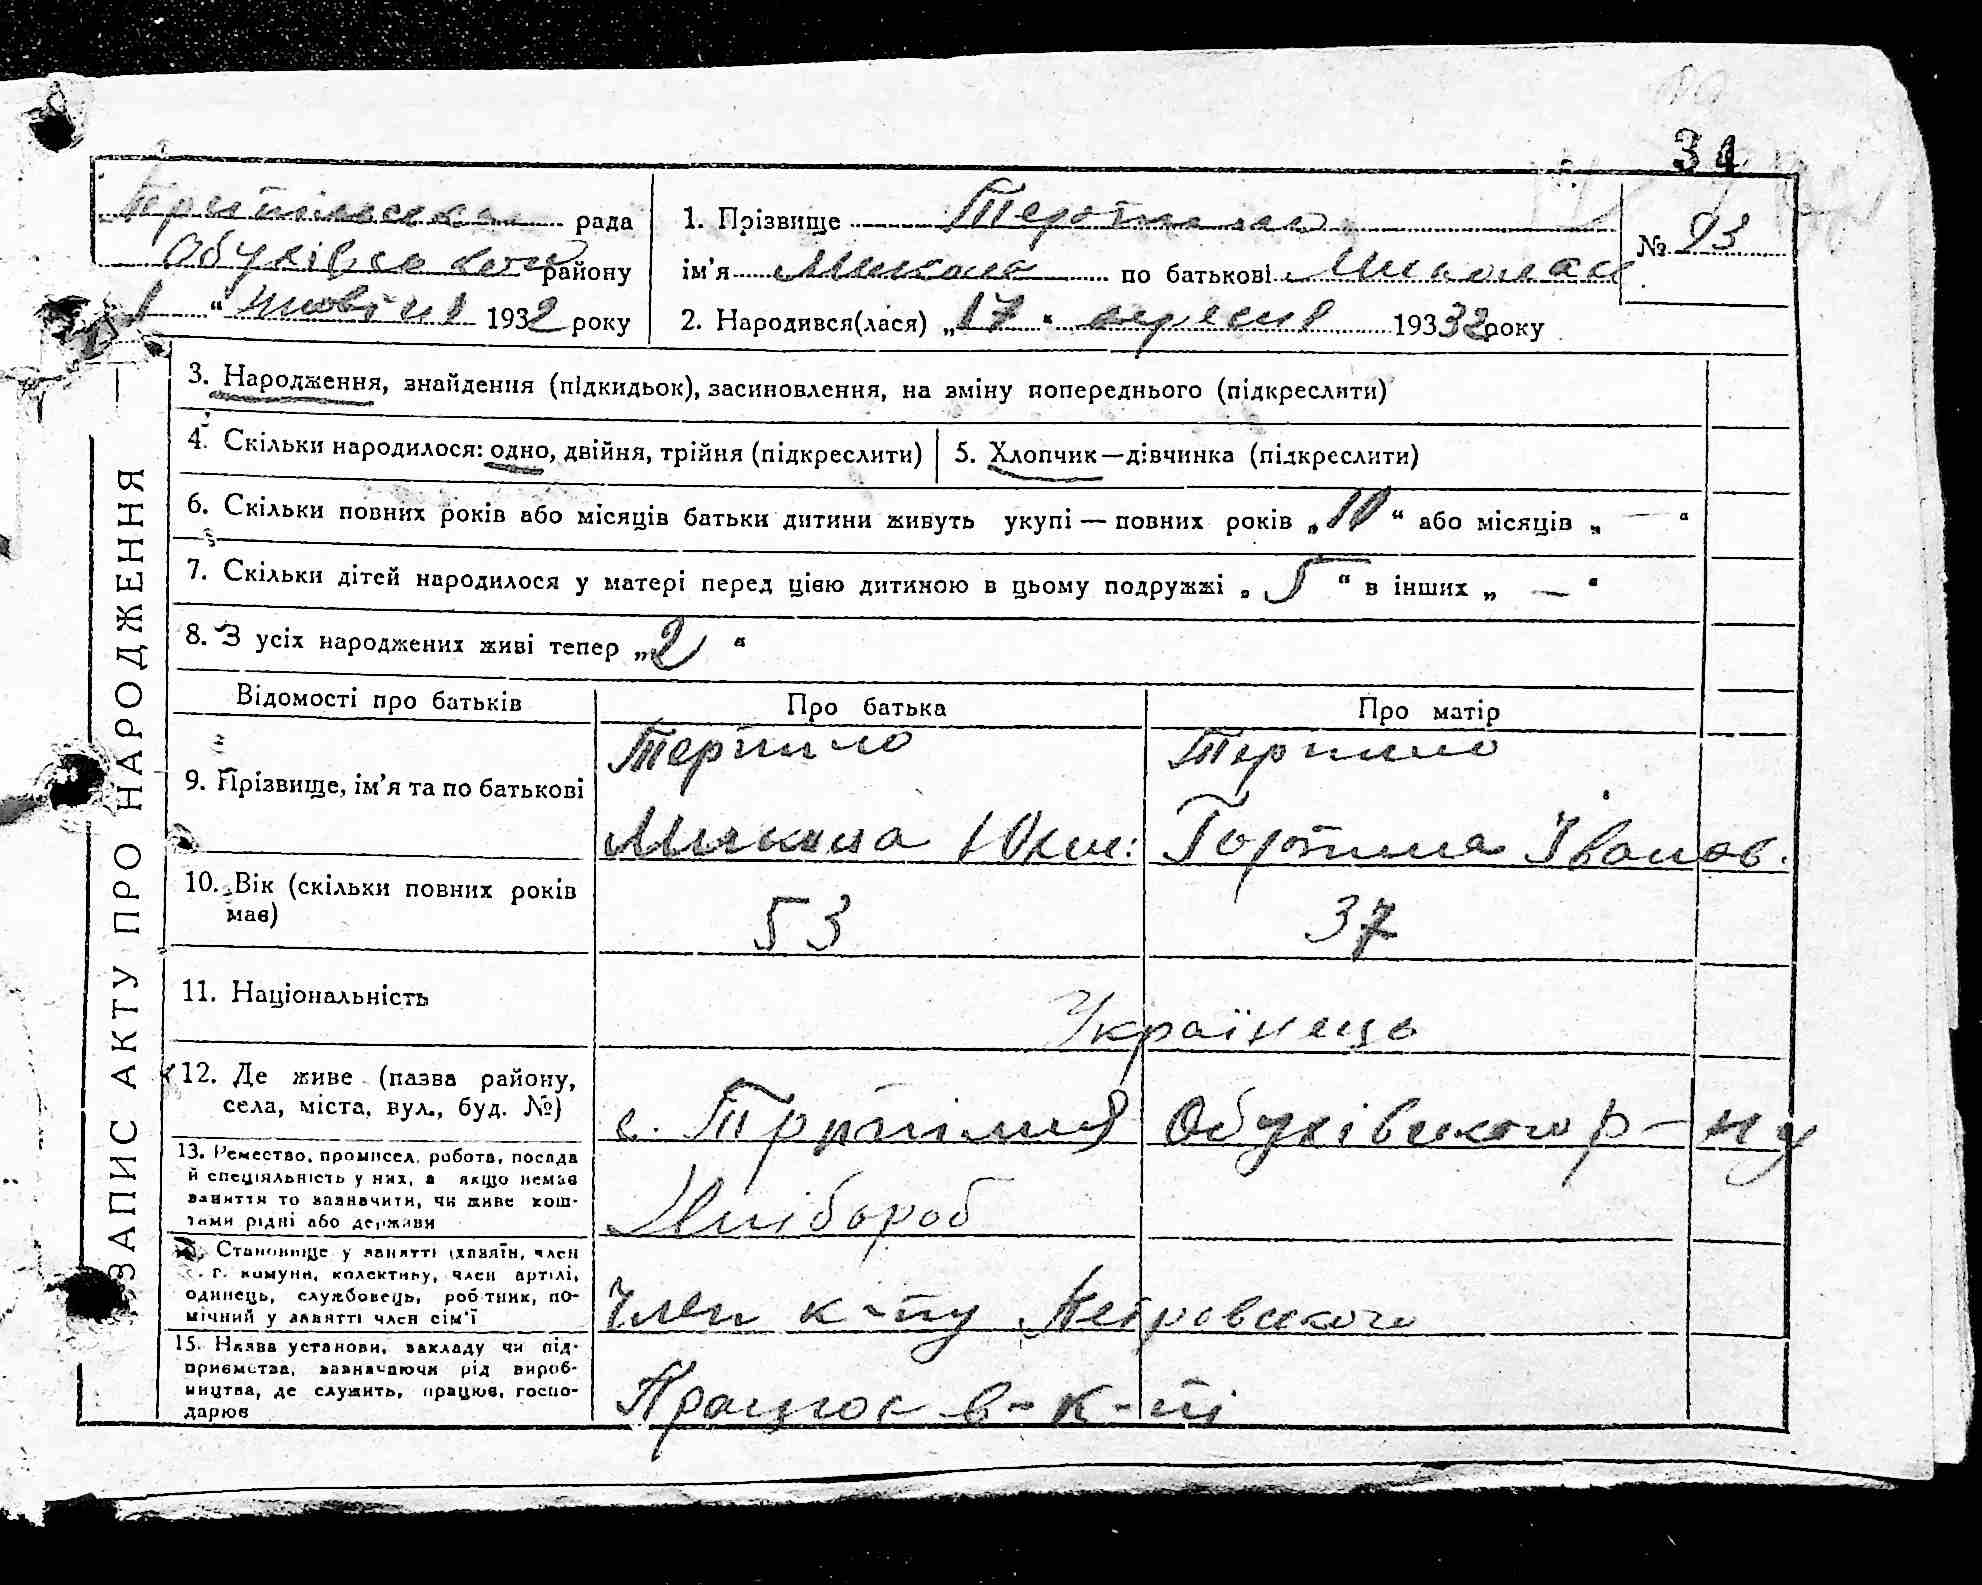 34
Трипільська рада
Обухівського району
1 " жовтня 1932 року
1. Прізвище Терпило
ім'я Микола по батькові Микола
№ 93
2. Народився(лася) „17 " вересня 193 32 року
ЗАПИС АКТУ ПРО НАРОДЖЕННЯ
3. Народження, знайдення (підкидьок), засиновлення, на зміну попереднього (підкреслити)
4. Скільки народилося: одно, двійня, трійня (підкреслити)
5. Хлопчик—дівчинка (підкреслити)
6. Скільки повних років або місяців батьки дитини живуть укупі — повних років „10 “ або місяців „ — “
7. Скільки дітей народилося у матері перед цією дитиною в цьому подружжі „ 5 “ в інших „ — “
8. З усіх народжених живі тепер „2 “
Відомості про батьків
Про батька
Про матір
9. Прізвище, ім'я та по батькові
Терпило
Терпило
Микола Юхим:
Горпина Іванов.
10. Вік (скільки повних років має)
53
37
11. Національність
Українець
12. Де живе (назва району, села, міста, вул., буд. №)
с. Трипілля Обухівського р-ну
13. Ремество, промисел, робота, посада
й спеціяльність у них, а якщо немає
заняття то зазначити, чи живе кош-
тами рідні або держави
Хлібороб
14. Становище у занятті (хазяїн, член
с. г. комуни, колективу, член артілі,
одинець, службовець, робітник, по-
мічний у занятті член сім'ї
Член к-пу Петровського
15. Назва установи, закладу чи під-
приємства, зазначаючи рід вироб-
ництва, де служить, працює, госпо-
дарює
Працює в-к-ті